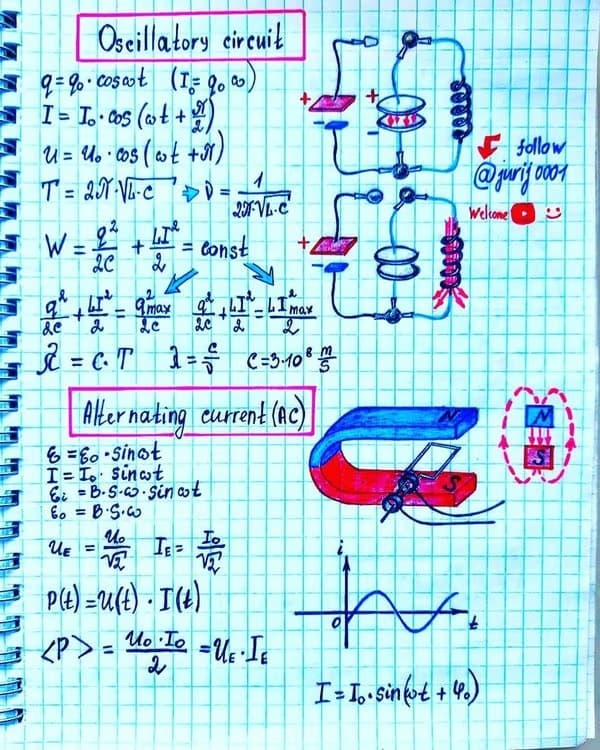 Oscillatory circuit
q = q₀ · cosωt (I₀ = q₀ ω)
I = I₀ · cos (ωt + π/2)
u = u₀ · cos (ωt + π)
T = 2π·√L·C ⇒ ν = 1/2π·√L·C
W = q²/2C + LI²/2 = const
q²/2C + LI²/2 = q²max/2C q²/2C + LI²/2 = LI²max/2
λ = c · T λ = c/ν C = 3·10⁸ m/s
+
+
-
-
follow
@jurij0001
Welcome
+
-
Alternating current (AC)
ε = ε₀ · sinωt
I = I₀ · sinωt
εi = B·S·ω·sinωt
ε₀ = B·S·ω
UE = U₀/√2 IE = I₀/√2
P(t) = U(t) · I(t)
<P> = U₀·I₀/2 = UE·IE
N
S
N
S
i
0
t
I = I₀·sin(ωt + φ₀)